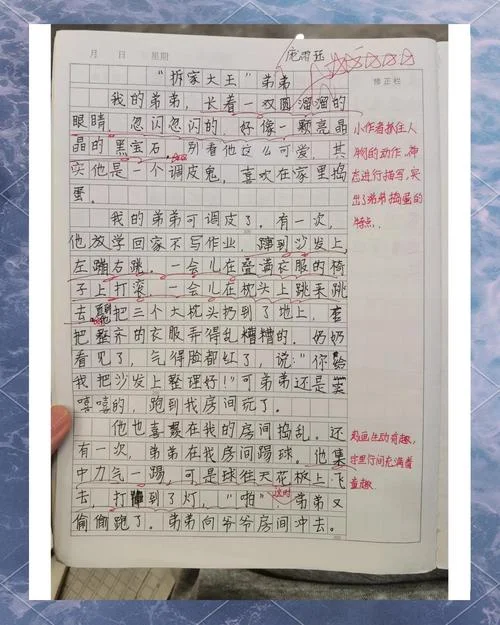 月 日 星期
修正栏
“拆家大王”弟弟
我的弟弟，长着一双圆溜溜的
眼睛，忽闪忽闪的，好像一颗亮晶
晶的黑宝石，别看他这么可爱，其
实他是一个调皮鬼，喜欢在家里捣
蛋。
我的弟弟可调皮了。有一次，
他放学回家不写作业，蹿到沙发上，
左蹦右跳。一会儿在叠满衣服的椅
子上打滚，一会儿在枕头上跳来跳
去，把三个大枕头扔到了地上，
把整齐的衣服弄得乱糟糟的。奶奶
看见了，气得脸都红了，说：“你给
我把沙发上整理好！”可弟弟还是
嘻嘻的，跑到我房间玩了。
他也喜欢在我的房间捣乱。还
有一次，弟弟在我房间踢球。他集
中力气一踢，可是球往天花板上飞
去，打到了灯，“啪”，弟弟又
这时
偷偷跑了。弟弟向爷爷房间冲去。
小作者抓住人
物的动作、神
态进行描写，突
出了弟弟捣蛋的
特点。
刻画生动有趣，
字里行间充满着
童趣